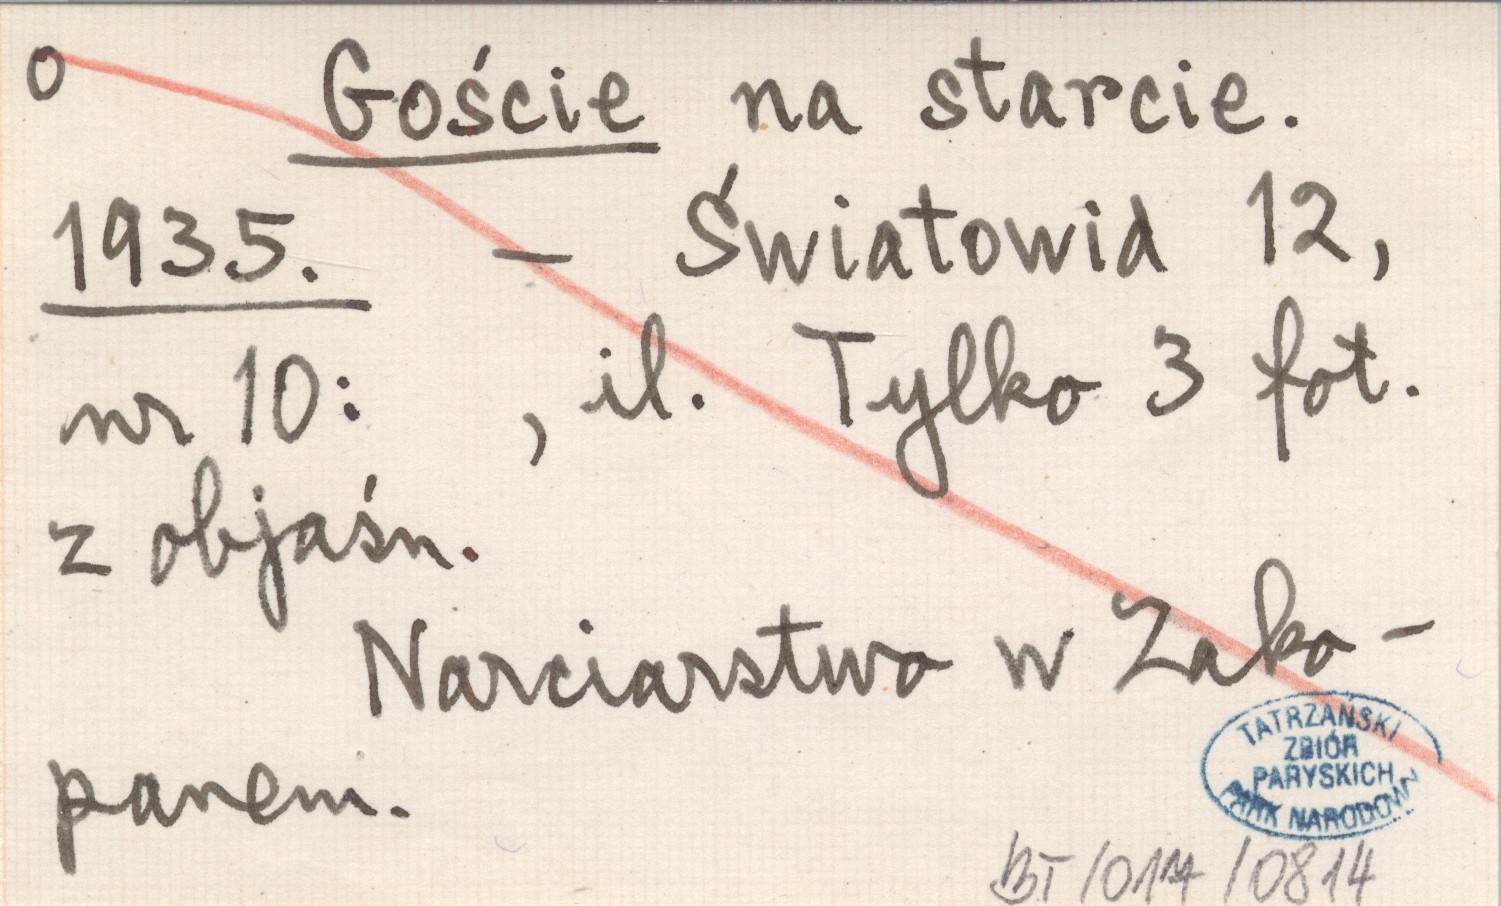 o Goście na starcie.
1935. – Światowid 12,
nr 10: , il. Tylko 3 fot.
z objaśn.
Narciarstwo w Zako-
panem.
TATRZAŃSKI
ZBIÓR
PARYSKICH
PARK NARODOWY
BT /0174 /0814